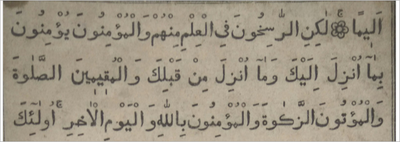 اَلِيمًا ۞ لٰكِنِ الرّٰسِخُونَ فِى الْعِلْمِ مِنْهُمْ وَالْمُؤْمِنُونَ يُؤْمِنُونَ
بِمَا اُنْزِلَ اِلَيْكَ وَمَا اُنْزِلَ مِنْ قَبْلِكَ وَالْمُقِيمِينَ الصَّلٰوةَ
وَالْمُؤْتُونَ الزَّكٰوةَ وَالْمُؤْمِنُونَ بِاللهِ وَالْيَوْمِ الْاٰخِرِ اُولٰئِكَ